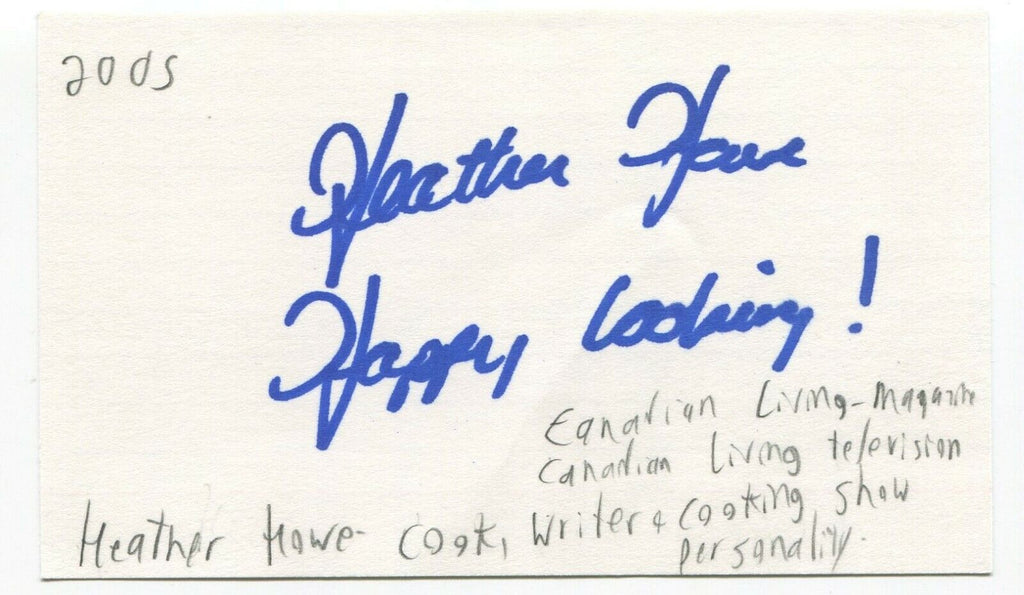 2005
Heather Howe
Happy Cooking!
Canadian Living-Magazine
Canadian Living television
Heather Howe- Cook, Writer & Cooking show
personality.